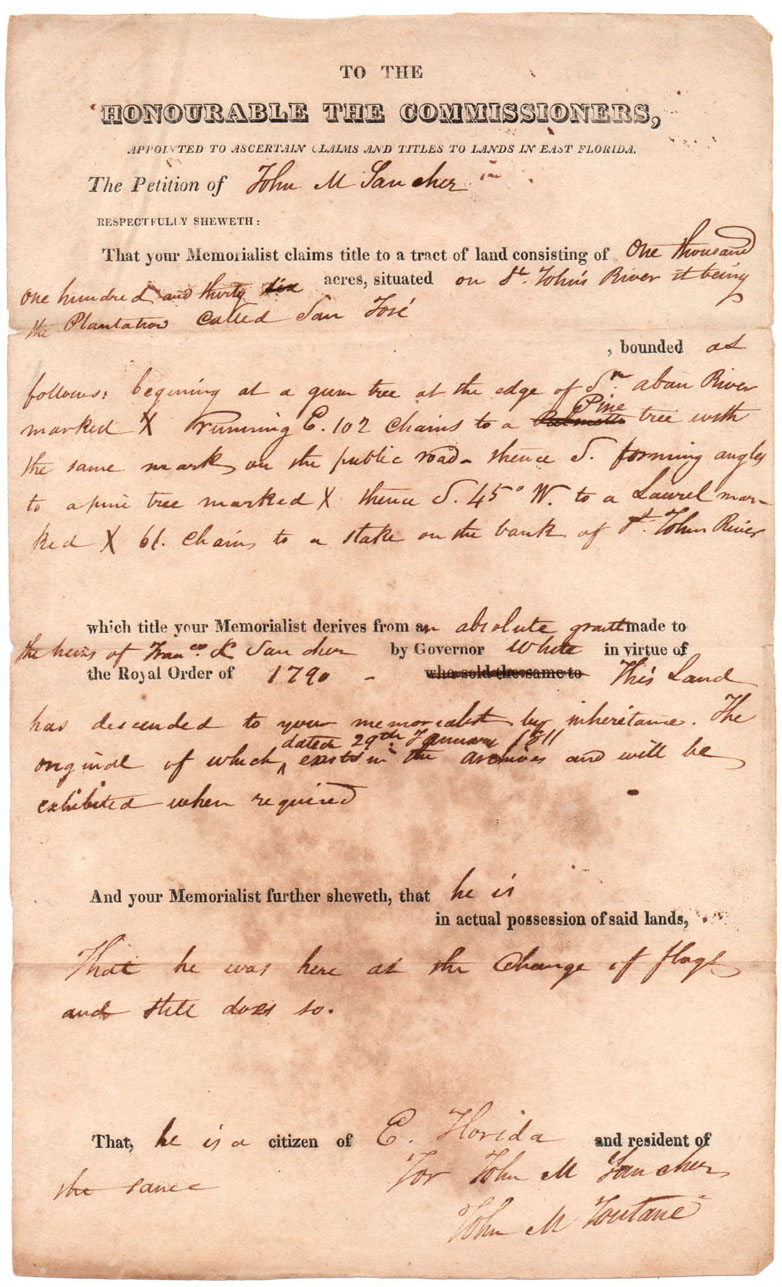 TO THE
HONOURABLE THE COMMISSIONERS,
APPOINTED TO ASCERTAIN CLAIMS AND TITLES TO LANDS IN EAST FLORIDA.
The Petition of John M Sanchez
RESPECTFULLY SHEWETH:
That your Memorialist claims title to a tract of land consisting of One thousand
one hundred and thirty six acres, situated on St. John's River it being
the Plantation called San José
, bounded as
follows: begining at a gum tree at the edge of River
marked X running E. 102 chains to a Pine
Palmetto tree with
the same mark on the public road thence S. forming angles
to a pine tree marked X thence S. 45° W. to a Laurel mar-
ked X 61. Chains to a stake on the bank of St. Johns River
which title your Memorialist derives from an absolute grant made to
the heirs of Franco. X Sanchez by Governor White in virtue of
the Royal Order of 1790 - who sold the same to This Land
has descended to your memorialist by inheritance. The
dated 29th January 1811
original of which exists in the archives and will be
exhibited when required
And your Memorialist further sheweth, that he is
in actual possession of said lands,
That he was here at the Change of flags
and still does so.
That, he is a citizen of E. Florida and resident of
the same For John M Sanchez
John M Fontane